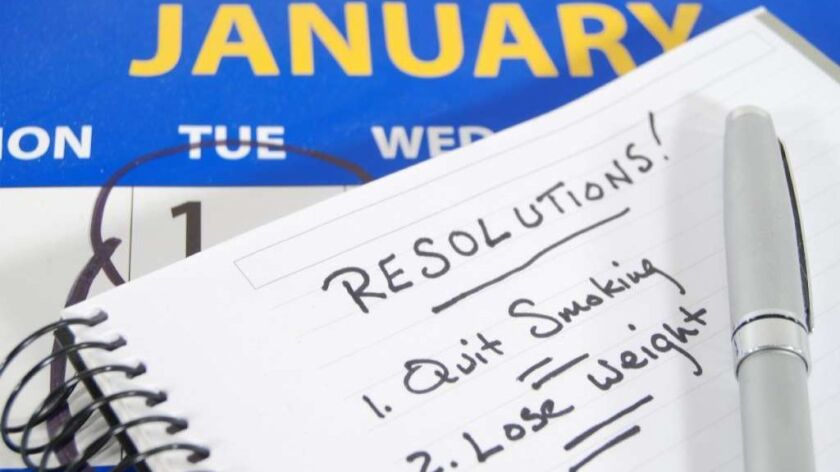 JANUARY
ION TUE WED
1
RESOLUTIONS!
1. Quit Smoking
2. Lose Weight